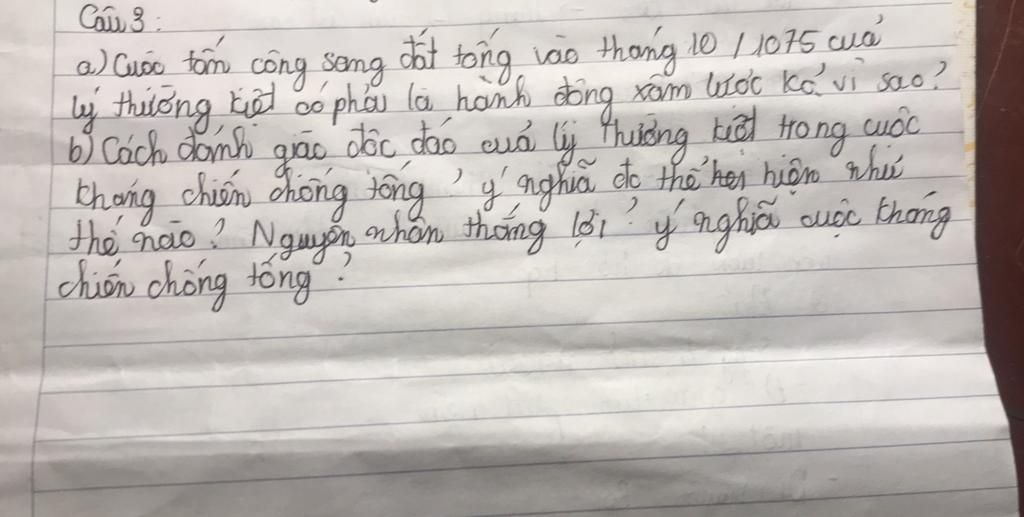 Câu 3:
a) Cuộc tấn công sang đất tống vào tháng 10 / 1075 của
lý thường kiệt có phải là hành động xâm lược kơ vì sao?
b) Cách đánh giặc độc đáo của lý thường kiệt trong cuộc
kháng chiến chống tống? ý nghĩa đc thể hiện như
thế nào? Nguyên nhân thắng lợi? ý nghĩa cuộc kháng
chiến chống tống?